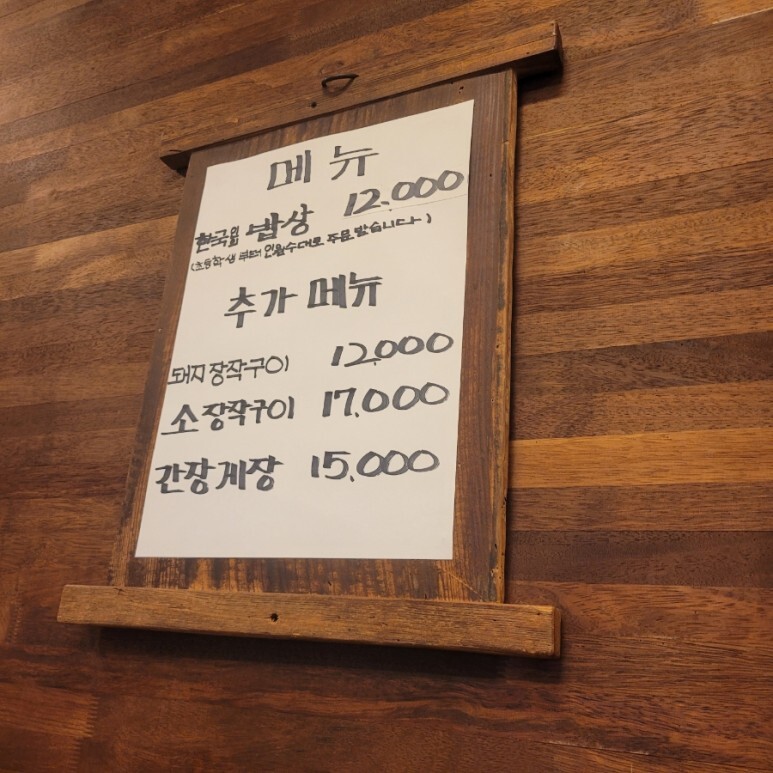 메뉴
한국인 밥상 12.000
(초등학생 부터 인원수대로 주문 받습니다)
추가 메뉴
돼지장작구이 12.000
소장작구이 17.000
간장게장 15.000